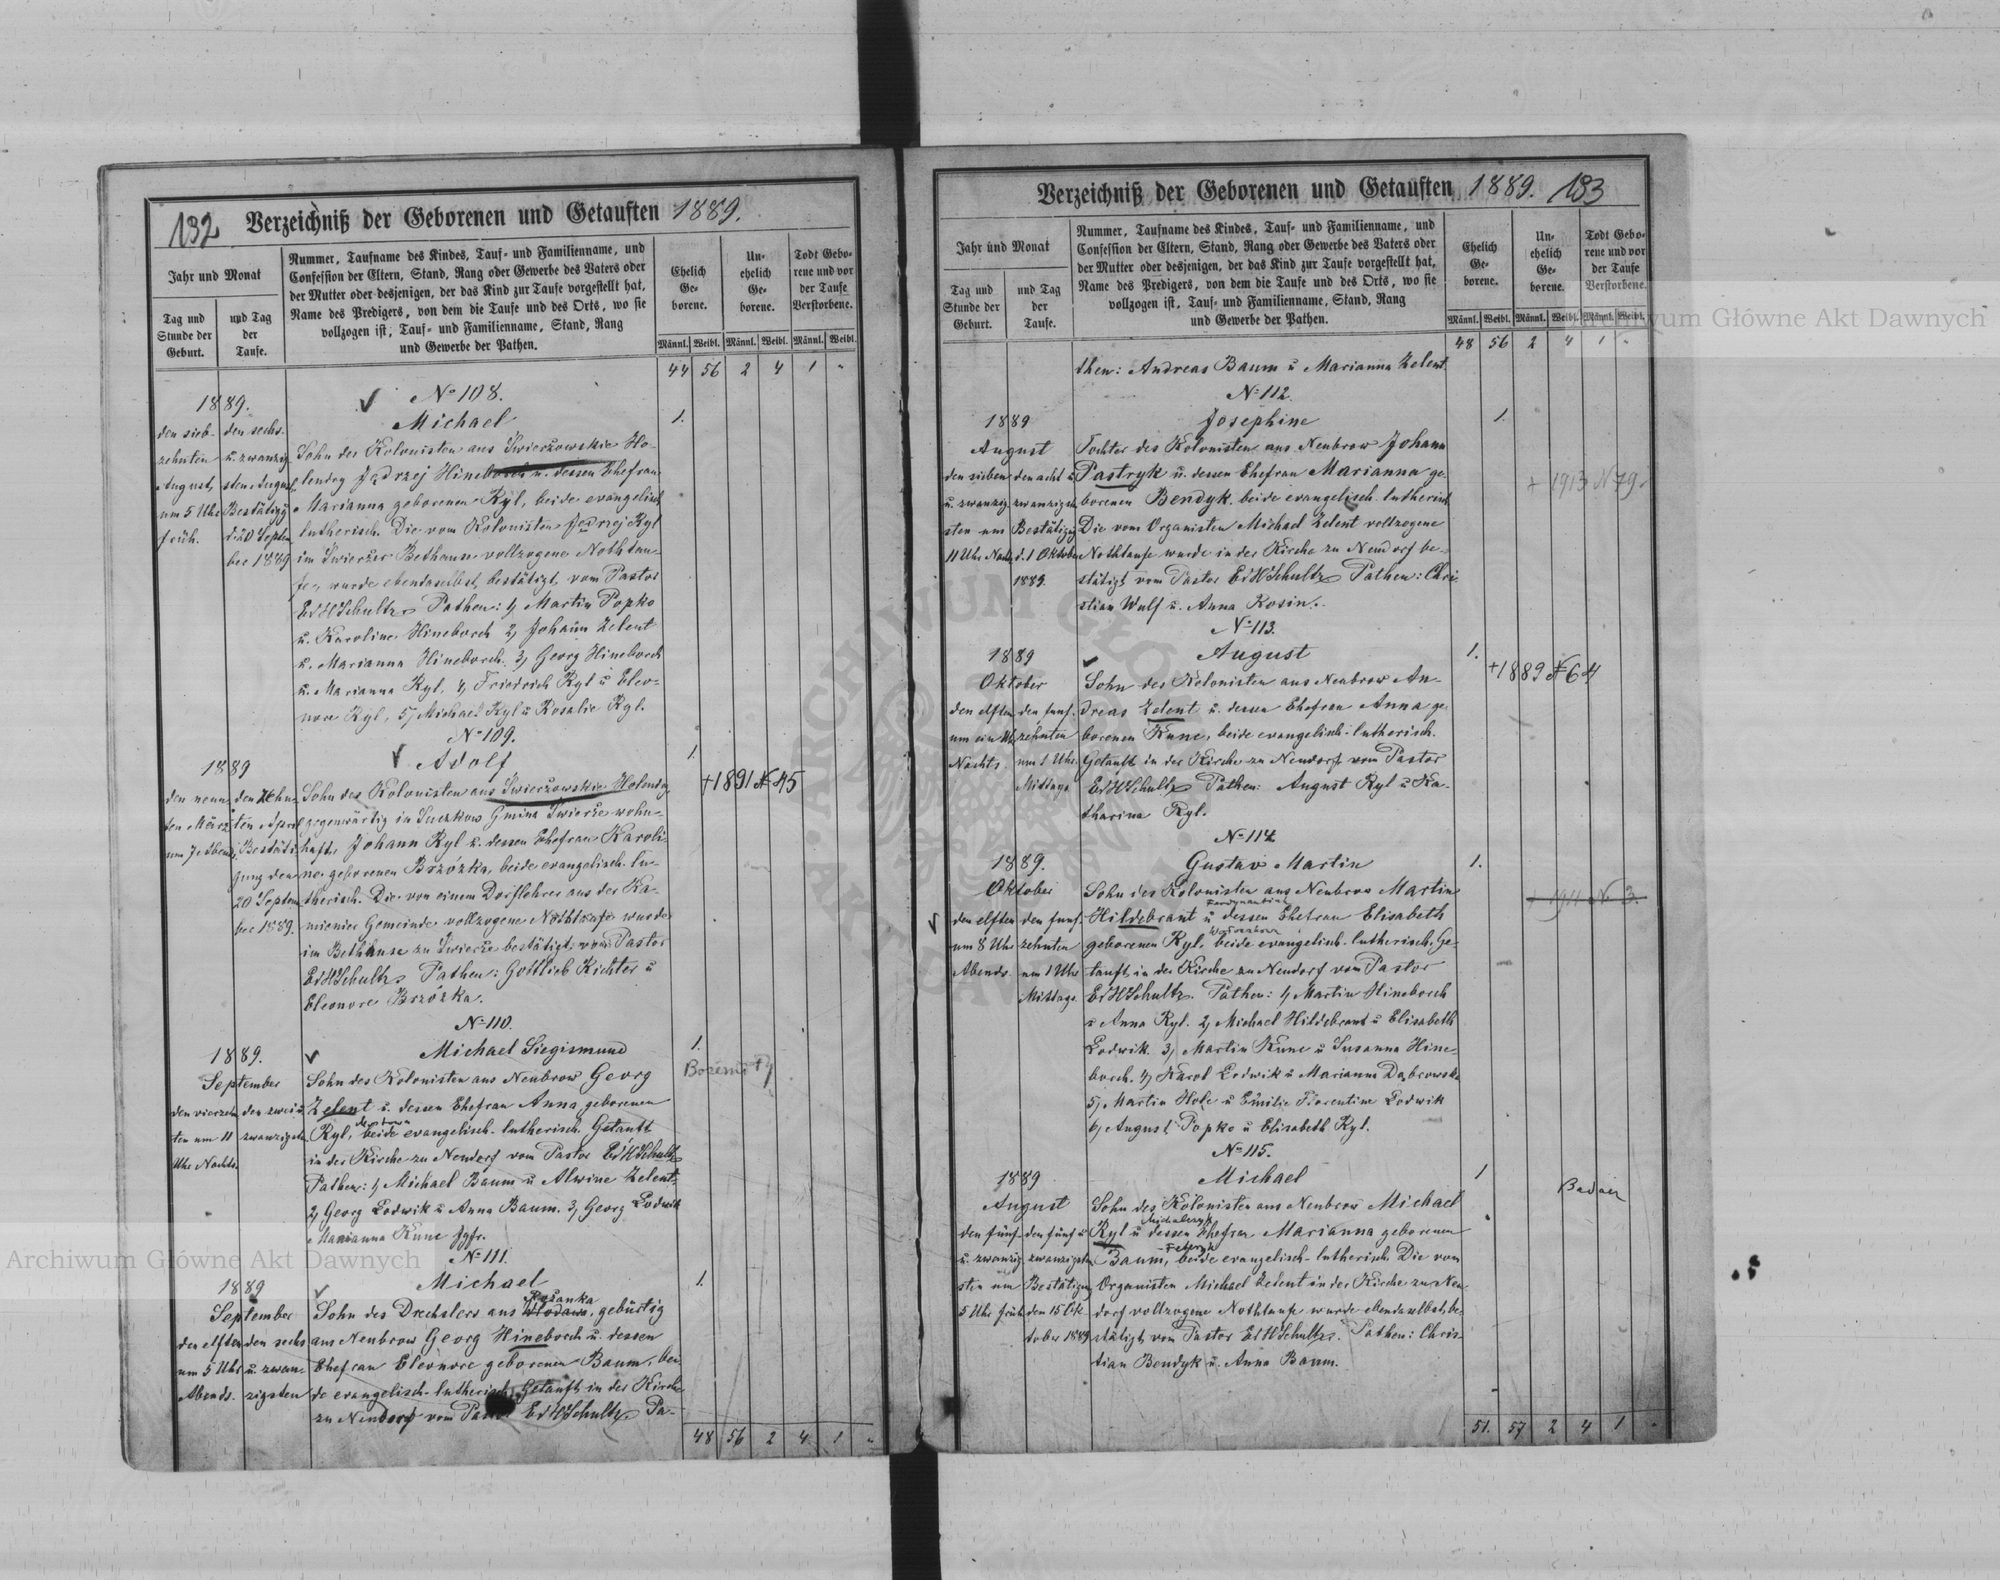 132 Verzeichniß der Geborenen und Getauften 1889.
Jahr und Monat
Tag und Stunde der Geburt.
und Tag der Taufe.
Nummer, Taufname des Kindes, Tauf- und Familienname, und
Confession der Eltern, Stand, Rang oder Gewerbe des Vaters oder
der Mutter oder desjenigen, der das Kind zur Taufe vorgestellt hat,
Name des Predigers, von dem die Taufe und des Orts, wo sie
vollzogen ist, Tauf- und Familienname, Stand, Rang
und Gewerbe der Pathen.
Ehelich Ge- borene.
Un- ehelich Ge- borene.
Todt Gebo- rene und vor der Taufe Verstorbene.
Männl. Weibl. Männl. Weibl. Männl. Weibl.
44 56 2 4 1 "
№ 108.
1889.
Michael 1.
den sieb- zehnten August um 5 Uhr früh.
den sechs- u. zwanzig- sten August Bestätigg d. 20 Septem- ber 1889
Sohn des Kolonisten aus Swierżowskie Ho-
lendry Jędrzej Hineborch u. dessen Ehefrau
Marianna geborenen Ryl, beide evangelisch
lutherisch. Die vom Kolonisten Jędrzej Ryl
im Swierżer Bethause vollzogene Nothtau-
fe, wurde ebendaselbst bestätigt vom Pastor
EdHSchultz Pathen: 1, Martin Popko
u. Karoline Hineborch 2, Johann Zelent
u. Marianna Hineborch. 3, Georg Hineborch
u. Marianna Ryl, 4, Friedrich Ryl u Eleo-
nore Ryl, 5, Michael Ryl u Rosalie Ryl.
№ 109.
1889
Adolf 1.
+1891 № 45
den neun- ten März um 7 Abends
den Zehn- ten April Bestäti- gung den 20 Septem- ber 1889.
Sohn des Kolonisten aus Swierżowskie Holendry
gegenwärtig in Suczkow Gmina Swierże wohn-
haft, Johann Ryl u. dessen Ehefrau Karoli-
ne geborenen Brzózka, beide evangelisch-lu-
therisch. Die von einem Dorflehrer aus der Ka-
mienier Gemeinde vollzogene Nothtaufe wurde
im Bethause zu Swierże bestätigt vom Pastor
EdHSchultz Pathen: Gottlieb Richter u
Eleonore Brzózka.
№ 110.
1889.
Michael Siegismund 1.
September
den vierzehn- ten um 11 Uhr Nachts
den zwei u. zwanzigsten
Sohn des Kolonisten aus Neubrow Georg
Zelent u. dessen Ehefrau Anna geborenen
Ryl, beide evangelisch-lutherisch. Getauft
in der Kirche zu Neudorf vom Pastor EdHSchultz
Pathen: 1, Michael Baum u Alwine Zelent,
2, Georg Lodwik u Anna Baum. 3, Georg Lodwik
Marianna Kune Jgfr.
№ 111.
1889
Michael 1.
September
den elften um 5 Uhr Abends.
den sechs u. zwan- zigsten
Różanka
Sohn des Drechslers aus Wlodawa, gebürtig
aus Neubrow Georg Hineborch u. dessen
Ehefrau Eleonore geborenen Baum, bei-
de evangelisch-lutherisch. Getauft in der Kirche
zu Neudorf vom Pastor EdHSchultz Pa-
48 56 2 4 1 "
Verzeichniß der Geborenen und Getauften 1889. 133
Jahr und Monat
Tag und Stunde der Geburt.
und Tag der Taufe.
Nummer, Taufname des Kindes, Tauf- und Familienname, und
Confession der Eltern, Stand, Rang oder Gewerbe des Vaters oder
der Mutter oder desjenigen, der das Kind zur Taufe vorgestellt hat,
Name des Predigers, von dem die Taufe und des Orts, wo sie
vollzogen ist, Tauf- und Familienname, Stand, Rang
und Gewerbe der Pathen.
Ehelich Ge- borene.
Un- ehelich Ge- borene.
Todt Gebo- rene und vor der Taufe Verstorbene.
Männl. Weibl. Männl. Weibl. Männl. Weibl.
48 56 2 4 1 "
then: Andreas Baum u Marianna Zelent
№ 112.
1889
Josephine 1.
+ 1913 N 79
August
den sieben u. zwanzig- sten um 11 Uhr Nachts
den acht u zwanzigsten Bestätigung d. 1 Oktober 1889.
Tochter des Kolonisten aus Neubrow Johann
Pastryk u. dessen Ehefrau Marianna ge-
borenen Bendyk. beide evangelisch-lutherisch
Die vom Organisten Michael Zelent vollzogene
Nothtaufe wurde in der Kirche zu Neudorf be-
stätigt vom Pastor EdHSchultz Pathen: Chri-
stian Wulf u. Anna Rosin.
№ 113.
1889
August 1.
+1889 № 64
Oktober
den elften um ein Uhr Nachts
den funf- zehnten um 1 Uhr Mittags
Sohn des Kolonisten aus Neubrow An-
dreas Zelent u. dessen Ehefrau Anna ge-
borenen Kune, beide evangelisch-lutherisch.
Getauft in der Kirche zu Neudorf vom Pastor
EdHSchultz Pathen: August Ryl u Ka-
tharina Ryl.
№ 114.
1889.
Gustav Martin 1.
+ 1911 N 3
Oktober
den elften um 8 Uhr Abends.
den funf- zehnten um 1 Uhr Mittags
Sohn des Kolonisten aus Neubrow Martin
Hildebrant u dessen Ehefrau Elisabeth
geborenen Ryl, beide evangelisch-lutherisch. Ge-
tauft in der Kirche zu Neudorf vom Pastor
EdHSchultz. Pathen: 1, Martin Hineborch
u Anna Ryl. 2, Michael Hildebrant u Elisabeth
Lodwik. 3, Martin Kune u Susanna Hine-
borch. 4, Karol Lodwik u Marianna Dąbrowska
5, Martin Hole u Emilie Florentine Lodwik
6, August Popko u Elisabeth Ryl.
№ 115.
1889
Michael 1
August
den funf u. zwanzig- sten um 5 Uhr früh
den funf u zwanzigsten Bestätigung den 15 Ok- tober 1889
Sohn des Kolonisten aus Neubrow Michael
Ryl u dessen Ehefrau Marianna geborenen
Baum, beide evangelisch-lutherisch. Die vom
Organisten Michael Zelent in der Kirche zu Neu-
dorf vollzogene Nothtaufe wurde ebendaselbst be-
stätigt vom Pastor EdHSchultz. Pathen: Chris-
tian Bendyk u. Anna Baum.
51. 57 2 4 1 "
Archiwum Główne Akt Dawnych
Archiwum Główne Akt Dawnych